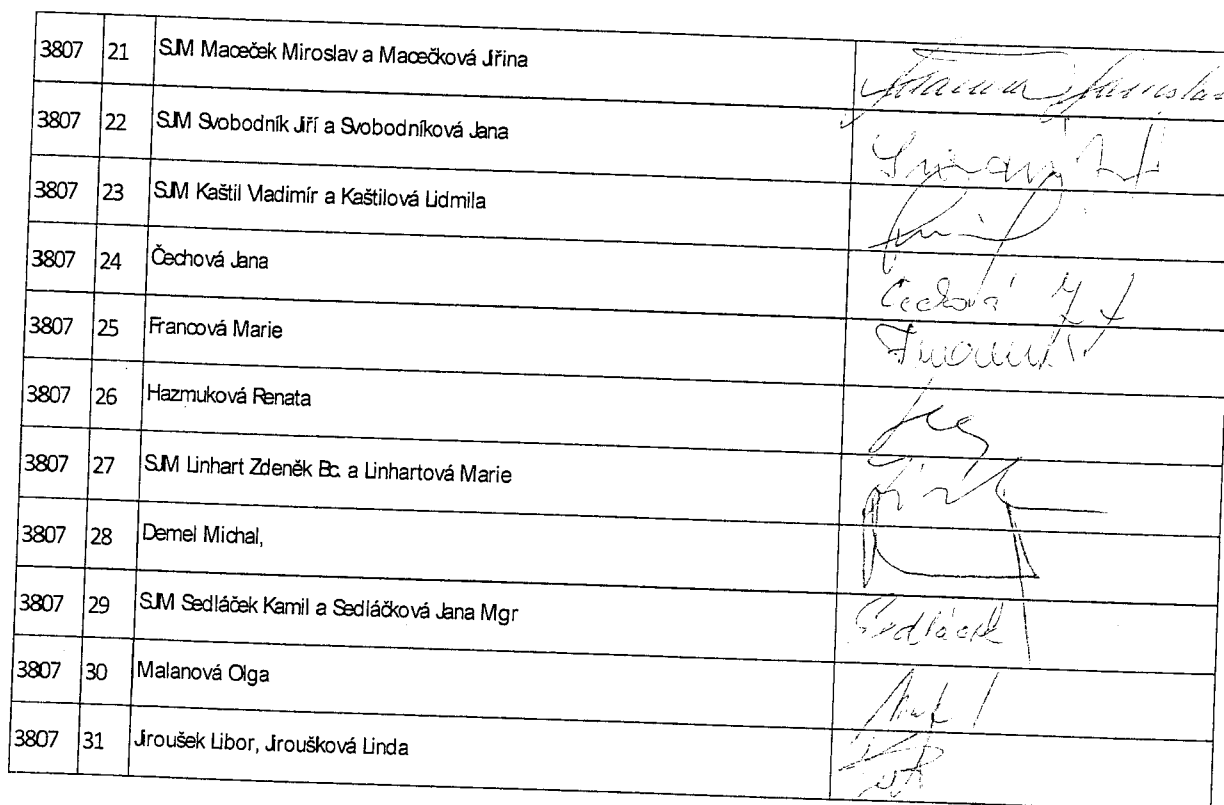 3807 21 SJM Maceček Miroslav a Macečková Jiřina
3807 22 SJM Svobodník Jiří a Svobodníková Jana
3807 23 SJM Kaštil Vladimír a Kaštilová Lidmila
3807 24 Čechová Jana Čechová
3807 25 Francová Marie
3807 26 Hazmuková Renata
3807 27 SJM Linhart Zdeněk Bc. a Linhartová Marie
3807 28 Demel Michal,
3807 29 SJM Sedláček Kamil a Sedláčková Jana Mgr Sedláček
3807 30 Malanová Olga
3807 31 Jiroušek Libor, Jiroušková Linda